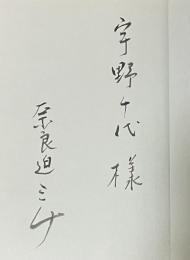 宇野千代様
奈良迫ミチ